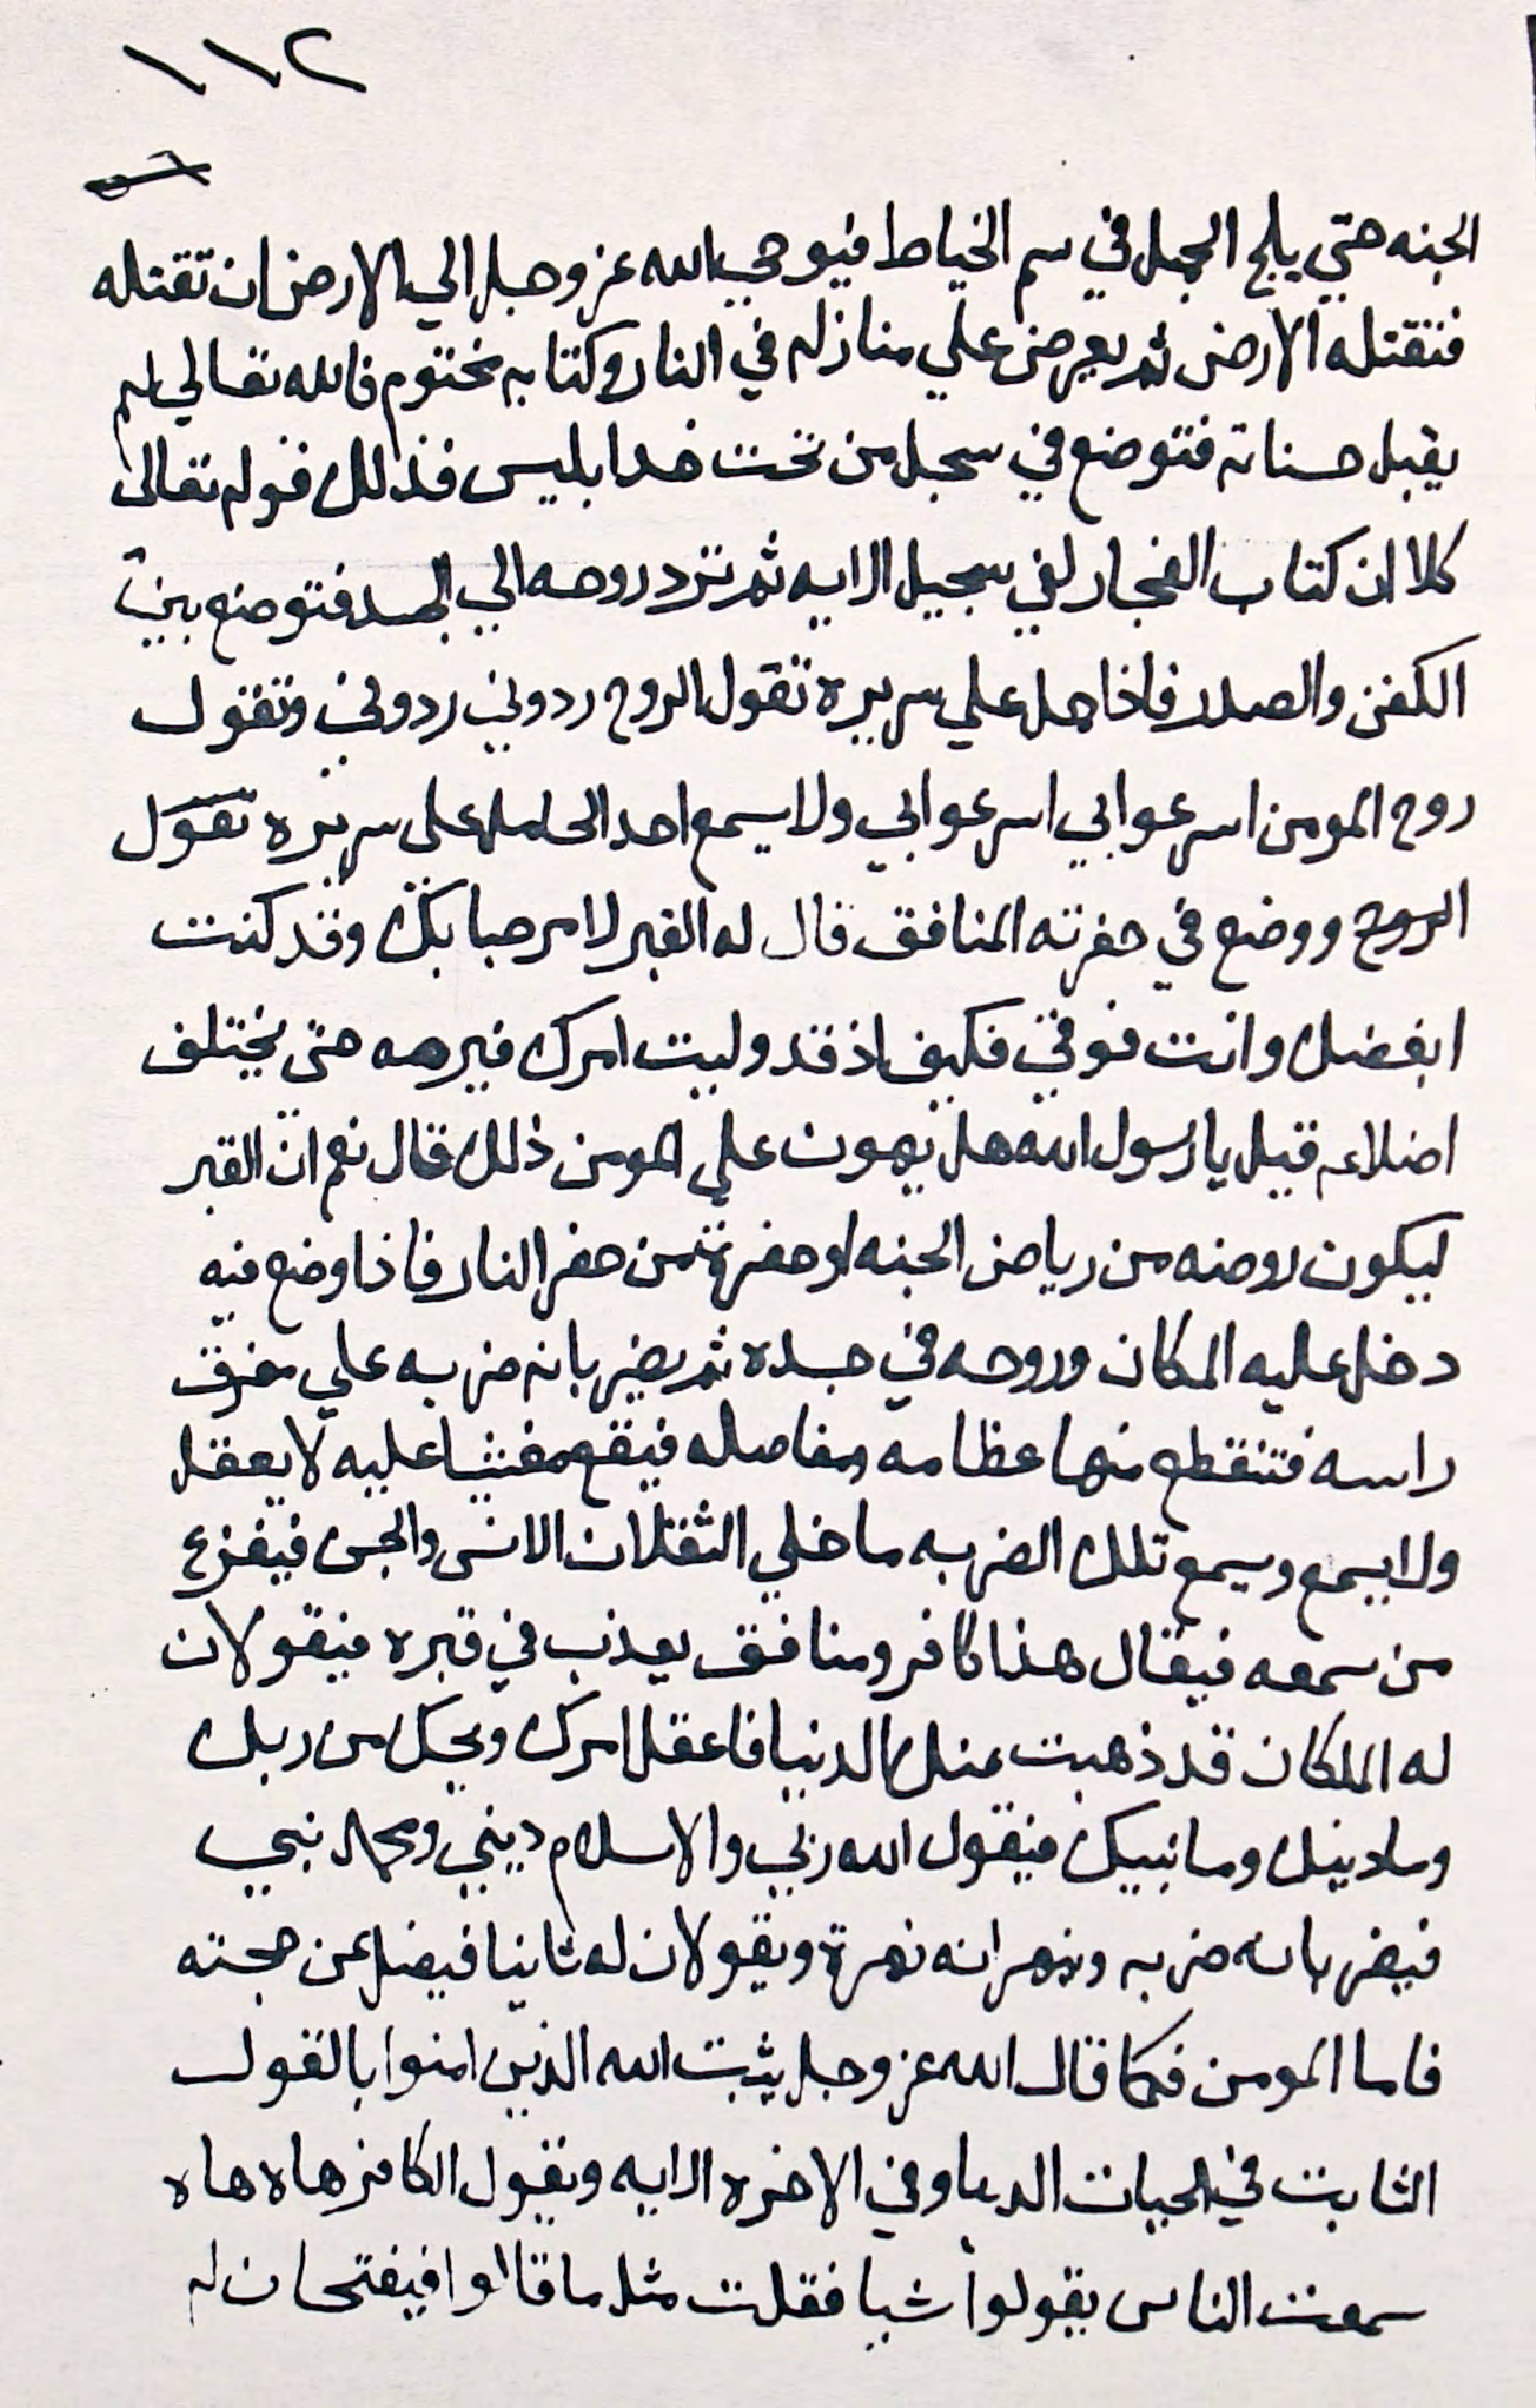 ١١٢
الجنه حتي يلج الجمل في سم الخياط فيوحي الله عز وجل الي الارض ان تقتله
فتقتله الارض ثم يعرض علي منازله في النار وكتابه مختوم فالله تعالي لم
يقبل حسناته فتوضع في سجيل من تحت خد ابليس فذلك قوله تعالى
كلا ان كتاب الفجار لفي سجيل الايه ثم ترد روحه الي الجسد فتوضع بين
الكفن والصدر فاذا حمل علي سريره تقول الروح ردوني ردوني وتقول
روح المومن اسرعوا بي اسرعوا بي ولا يسمع احد الحامله على سريره تقول
الروح ووضع في حفرته المنافق قال له القبر لا مرحبا بك وقد كنت
ابغضك وانت فوقي فكيف اذ قد وليت امرك حتى يختلف
اضلاعه قيل يا رسول الله هل يهون علي المومن ذلك قال نعم ان القبر
ليكون روضه من رياض الجنه او حفرة من حفر النار فاذا وضع فيه
دخل عليه المكان وروحه في جسده ثم يضربانه ضربه علي مفرق
راسه فتنقطع منها عظامه ومفاصله فيقع مغشيا عليه لا يعقل
ولا يسمع ويسمع تلك الضربه ما خلي الثقلان الانس والجن فيفزع
من سمعه فيقال هذا كافر ومنافق يعذب في قبره فيقولان
له الملكان قد ذهبت عنك الدنيا فاعقل امرك ويحك من ربك
وما دينك وما نبيك فيقول الله ربي والاسلام ديني ومحمد نبيي
فيضربانه ضربه وينهرانه نهرة ويقولان له ثانيا فيضل عن حجته
فاما المومن فكما قال الله عز وجل يثبت الله الذين امنوا بالقول
الثابت في الحيات الدنيا وفي الاخره الايه ويقول الكافر هاه هاه
سمعت الناس يقولوا شيا فقلت مثل ما قالوا فيفتحان له